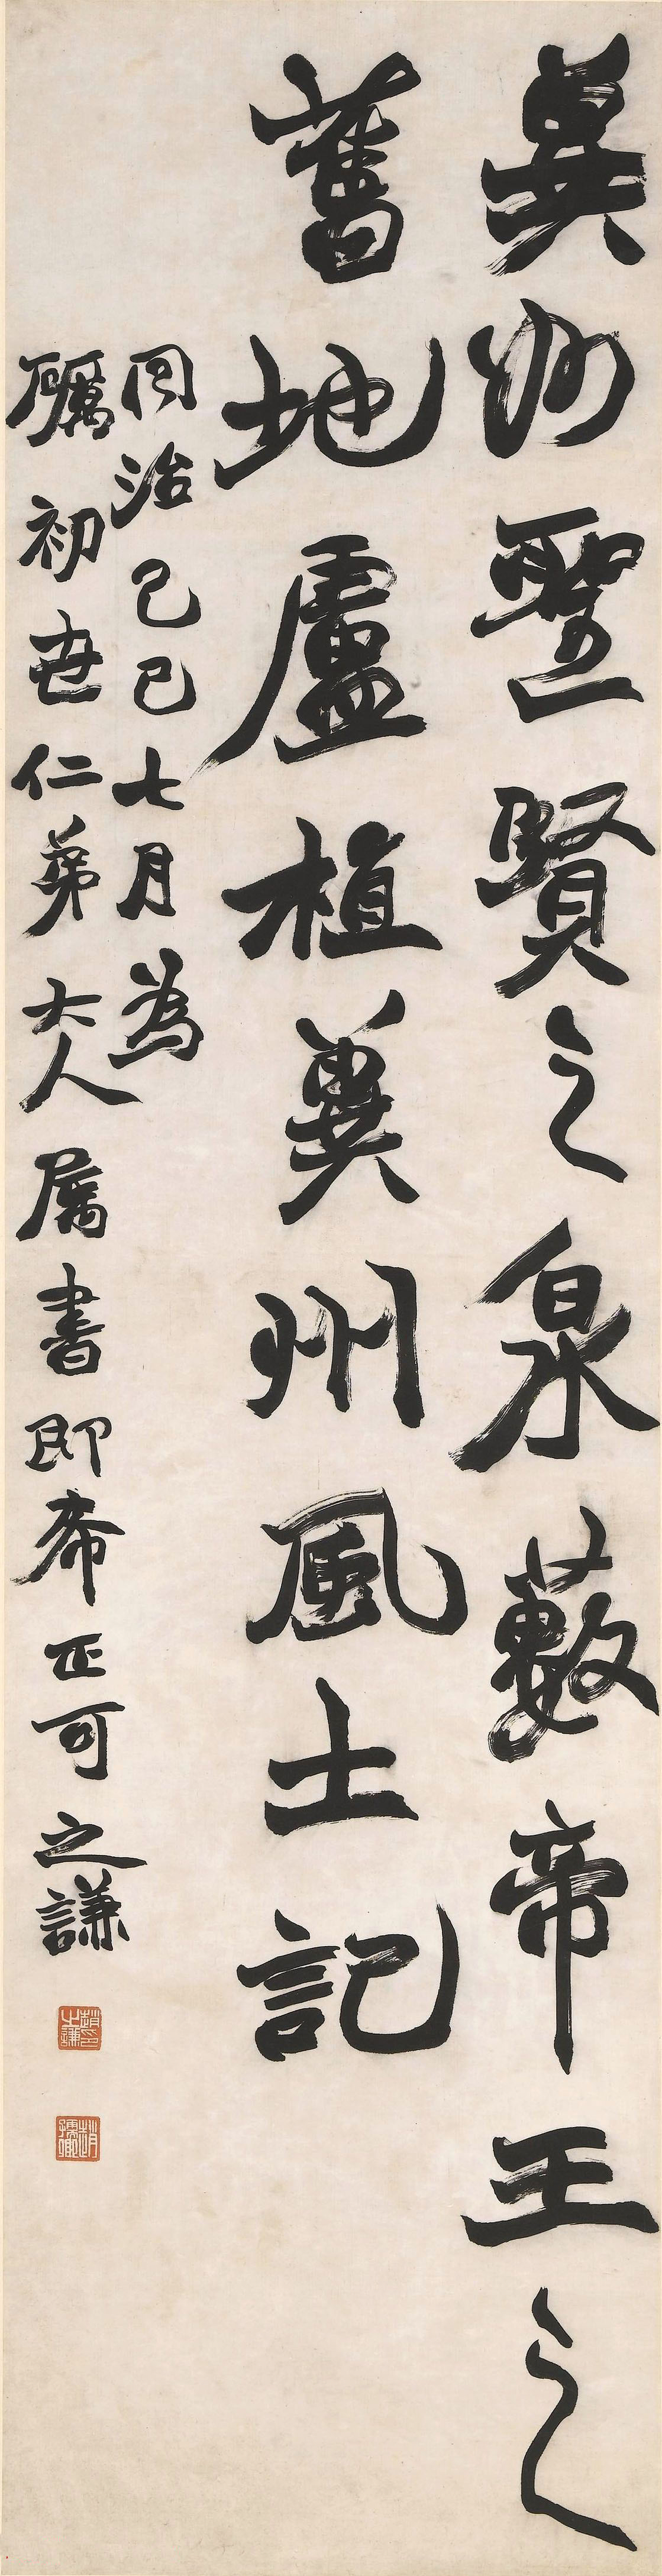 冀州聖賢之泉藪帝王之
舊地盧植冀州風土記
同治己巳七月為
礪初世仁弟大人屬書即希正可之謙
趙印之謙
趙撝叔